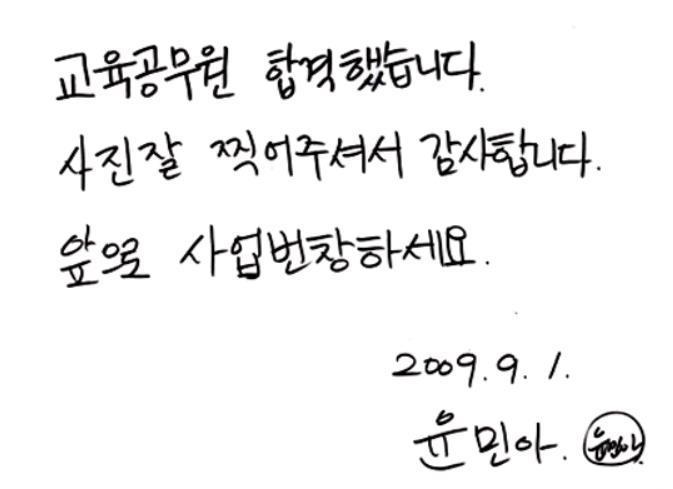 교육공무원 합격했습니다.
사진잘 찍어주셔서 감사합니다.
앞으로 사업번창하세요.
2009. 9. 1.
윤민아. 윤민아